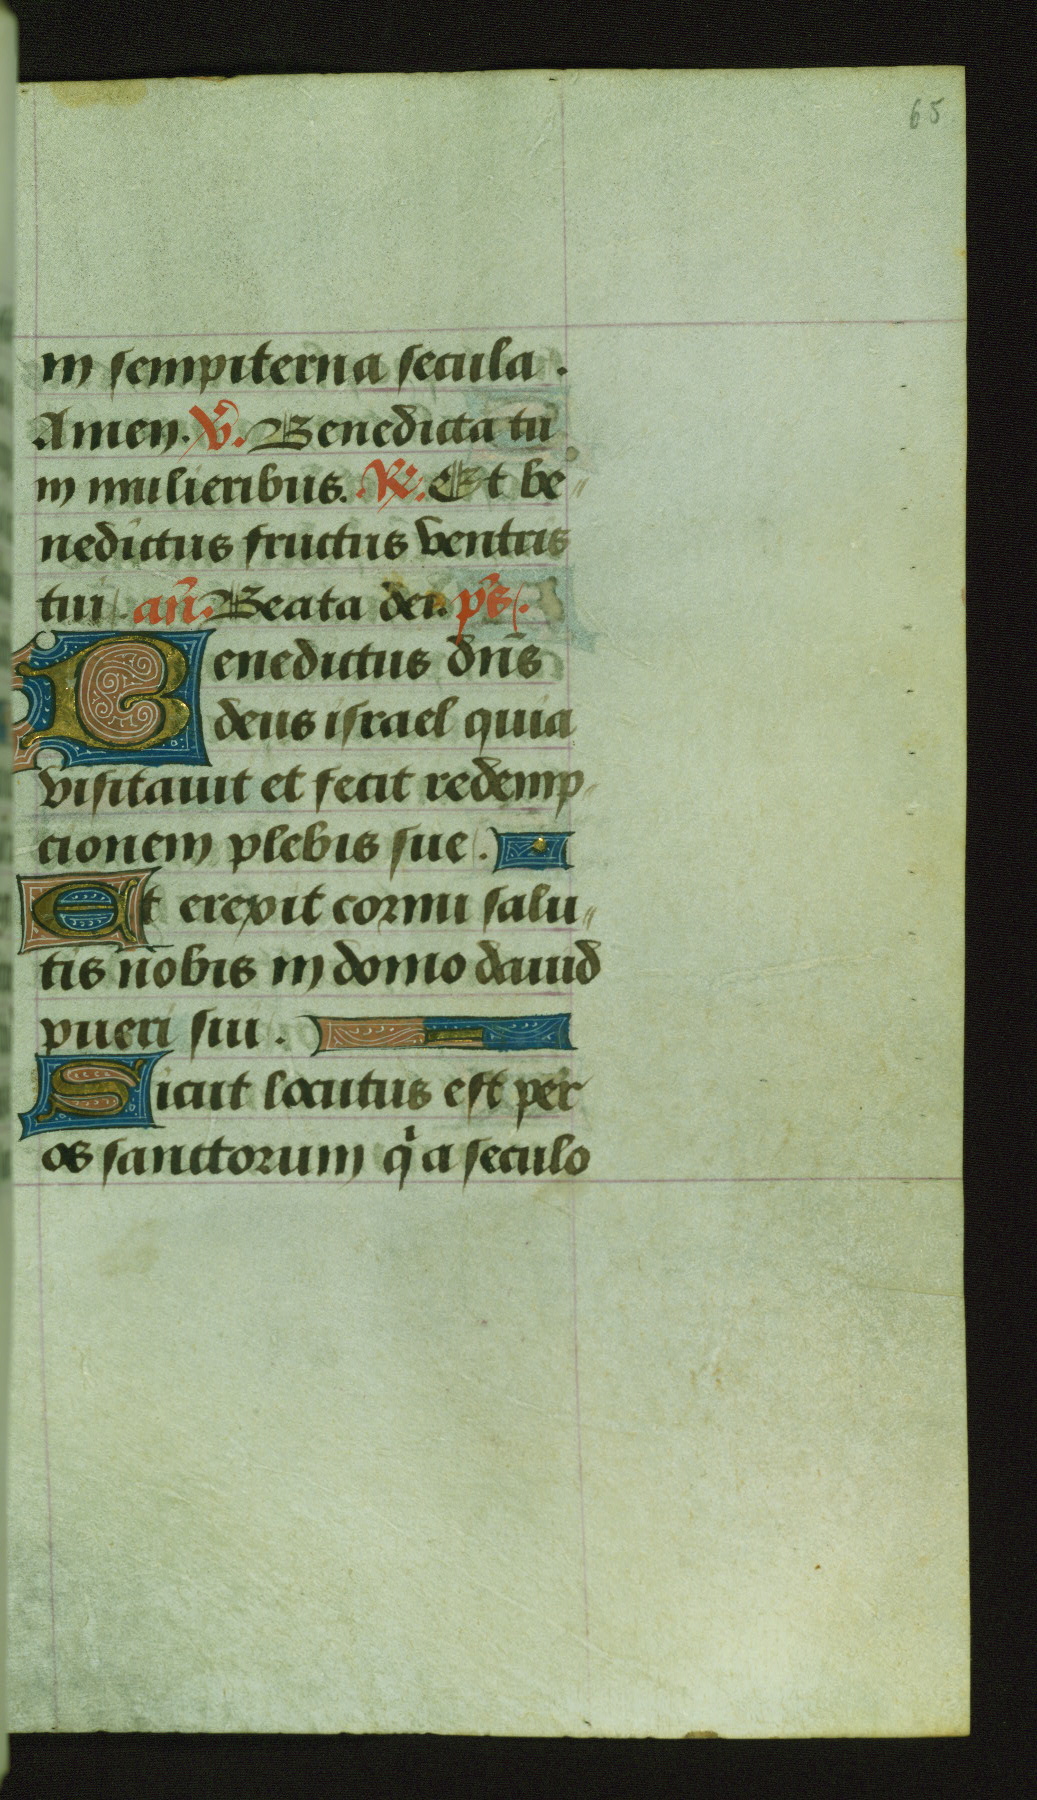 65
in sempiterna secula .
Amen. V̄. Benedicta tu
in mulieribus. R̄. Et be〃
nedictus fructus ventris
tui . an̄. Beata dei. ps̄.
Benedictus dn̄s
deus israel quia
visitauit et fecit redemp〃
cionem plebis sue .
Et erexit cornu salu〃
tis nobis in domo dauid
pueri sui .
Sicut locutus est per
os sanctorum qͥ a seculo